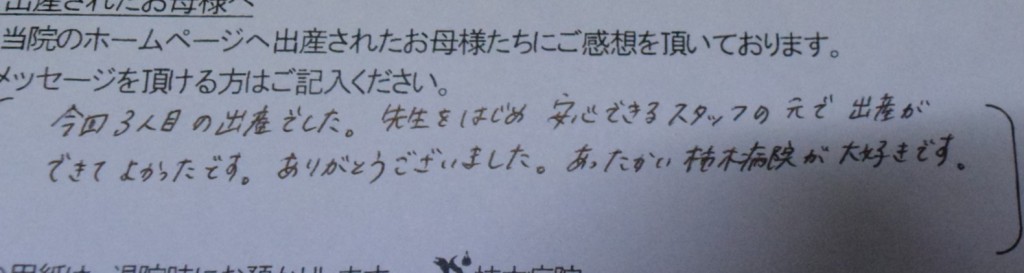 出産されたお母様へ
当院のホームページへ出産されたお母様たちにご感想を頂いております。
メッセージを頂ける方はご記入ください。
今回3人目の出産でした。先生をはじめ 安心できるスタッフの元で 出産が
できてよかったです。ありがとうございました。あったかい柿木病院が大好きです。
用紙は、退院時にお預かりします 柿木病院